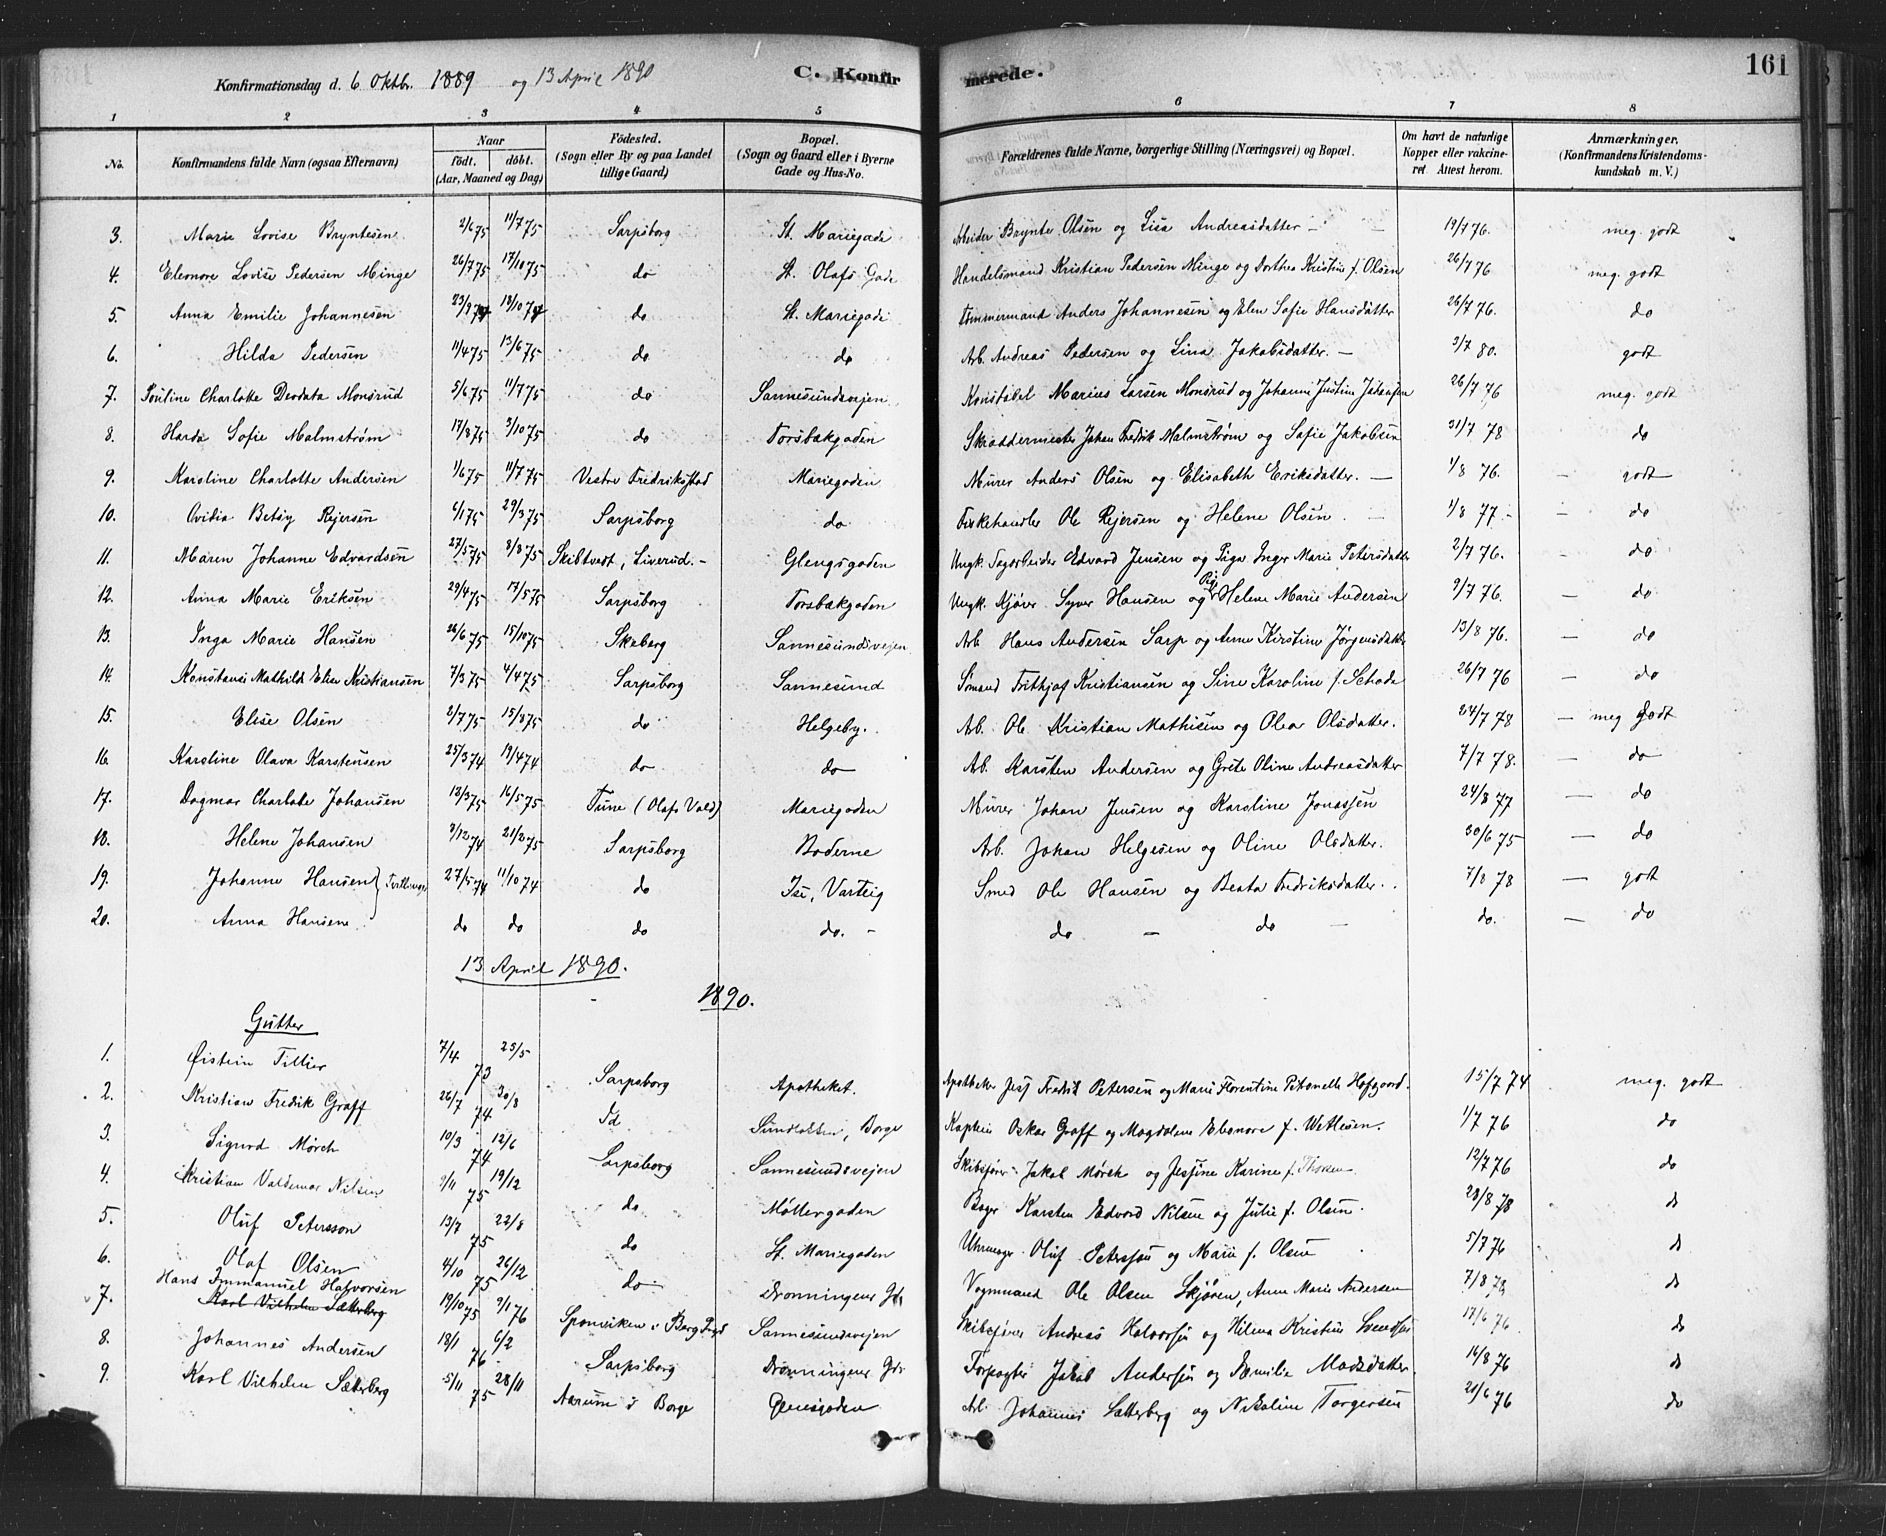 161
Konfirmationsdag d. 6 Oktbr. 1889 og 13 April 1890 C. Konfirmerede.
1 2 3 4 5 6 7 8
No. Konfirmandens fulde Navn (ogsaa Efternavn) Naar født. døbt. (Aar, Maaned og Dag) Fødested. (Sogn eller By og paa Landet tillige Gaard) Bopæl. (Sogn og Gaard eller i Byerne Gade og Hus-No. Forældrenes fulde Navne, borgerlige Stilling (Næringsvei) og Bopæl. Om havt de naturlige Kopper eller vakcineret. Attest herom. Anmærkninger. (Konfirmandens Kristendomskundskab m. V.)
3. Marie Lovise Bryntesen 2/6 75 11/7 75 Sarpsborg St. Mariegade Arbeider Brynte Olsen og Lisa Andreasdatter — 19/7 76. meg. godt
4. Eleonore Lovise Pedersen Minge 26/7 75 17/10 75 do St. Olafs Gade Handelsmand Kristian Pedersen Minge og Dorthea Kristine f. Olsen 26/7 76 meg. godt
5. Anna Emilie Johannesen 23/9 74 18/10 74 do St. Mariegade Tømmermand Anders Johannesen og Elen Sofie Hansdatter 26/7 76. do
6. Hilda Pedersen 11/4 75 13/6 75 do do Arb. Andreas Pedersen og Lina Jakobsdatter. — 3/7 80. godt
7. Pouline Charlotte Deodata Monsrud 5/6 75 11/7 75 do Sannesundsvejen. Konstabel Marius Larsen Monsrud og Johanne Justine Johansen 26/7 76 meg. godt
8. Harda Sofie Malmstrøm 17/8 75 3/10 75 do Torsbakgaden Skræddermester Johan Fredrik Malmstrøm og Sofie Jakobsen 31/7 78 do
9. Karoline Charlotte Andersen 1/6 75 11/7 75 Vestre Fredrikstad Mariegaden Murer Anders Olsen og Elisabeth Eriksdatter. — 1/8 76. — godt
10. Ovidia Betsy Rejersen 6/1 75 29/3 75 Sarpsborg do Fiskehandler Ole Rejersen og Helene Olsen. — 1/8 77. — do
11. Maren Johanne Edvardsen 27/5 75 8/8 75 Skibtvedt, Liverud. — Glengsgaden Ungk. Sagarbeider Edvard Jensen og Pige Inger Marie Petersdatter 2/7 76. — do
12. Anna Marie Eriksen 29/4 75 17/5 75 Sarpsborg Torsbakgaden Ungk. Kjører Syver Hansen og Pige Helene Marie Andersen 9/7 76. — do
13. Inga Marie Hansen 26/6 75 15/10 75 Skeberg Sannesundsvejen Arb. Hans Andersen Sarp og Anne Kirstine Jørgensdatter 13/8 76. — do
14. Konstansi Mathilde Elise Kristiansen 7/3 75 4/4 75 Sarpsborg Sannesund Sømand Frithjof Kristiansen og Sine Karoline f. Schade 26/7 76 — do
15. Elise Olsen 2/7 75 15/8 75 do Helgeby. Arb. Ole Kristian Mathisen og Olea Olsdatter. 24/7 78 — meg godt
16. Karoline Olava Karstensen 25/3 74 19/4 74 do do Arb. Karsten Andersen og Grete Oline Andreasdatter 7/7 78. — do
17. Dagmar Charlotte Johansen 12/3 75 16/5 75 Tune (Olafs Vold) Mariegaden Murer Johan Jensen og Karoline Jonassen 24/8 77 — do
18. Helene Johansen 3/12 74 21/2 75 Sarpsborg Boderne Arb. Johan Helgesen og Oline Olsdatter. 30/6 75 — do
19. Johanne Hansen } Tvillinger 27/5 74 11/10 74 do Ise, Varteig Smed Ole Hansen og Beata Fredriksdatter. 7/8 78 — godt
20. Anna Hansen do do do do. — do — do — do. — do
13 April 1890.
1890.
Gutter
1. Øistein Tillier 7/4 73 25/5 Sarpsborg Apotheket. Apotheker Jess Fredrik Petersen og Marie Florentine Petronelle Hofgaard. 15/7 74 meg. godt
2. Kristian Fredrik Graff 26/7 74 30/8 Id Sundløkken, Borge Kaptein Oskar Graff og Magdalene Eleonore f. Wetlesen. 1/7 76 do
3. Sigurd Mørch 10/3 74 12/6 Sarpsborg Sannesundsvejen Skibsfører Jakob Mørch og Jessine Karine f. 12/7 76 do
4. Kristian Valdemar Nilsen 9/11 75 19/12 do Møllergaden Bager Karsten Edvard Nilsen og Julie f. Olsen. 28/8 78 do
5. Oluf Petersson 13/7 75 22/8 do St. Mariegaden Uhrmager Oluf Petersson og Marie f. Olsen 5/7 76 do
6. Olaf Olsen 4/10 75 26/12 do Dronningens Gd. Vognmand Ole Olsen Skjøren, Anne Marie Andersen 7/8 do
Hans Immanuel Halvorsen
7. Karl Vilhelm Sæterberg 19/10 75 9/1 76 Sponviken i Berg Sannesundsvejen Skibsfører Andreas Halvorsen og Hilma Kristine Svendsen 17/6 76. do
8. Johannes Andersen 18/1 76 6/2 Sarpsborg Dronningens Gd. Forpagter Jakob Andersen og Emilie Madsdatter. 16/8 76 do
9. Karl Vilhelm Sæterberg 5/11 75 28/11 Aarum i Borge Glengsgaden Arb. Johannes Sæterberg og Nikoline Torgersen 20/6 76 do